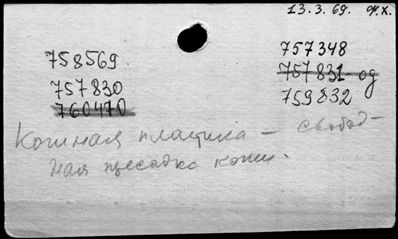 13.3.69. Ж.Х.
758569
757830
760470
757348
757831-од
759832
Кожная пластика - свобод-
ная пересадка кожи.